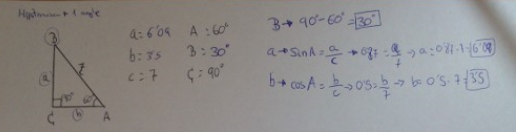 + 1 angle
B
a
7
90°
60°
C
b
A
a = 6'09 A = 60°
b = 3'5 B = 30°
c = 7 C = 90°
B → 90° - 60° = 30°
a → sin A = a/c → 0'87 = a/7 → a = 0'87 · 7 = 6'09
b → cos A = b/c → 0'5 = b/7 → b = 0'5 · 7 = 3'5